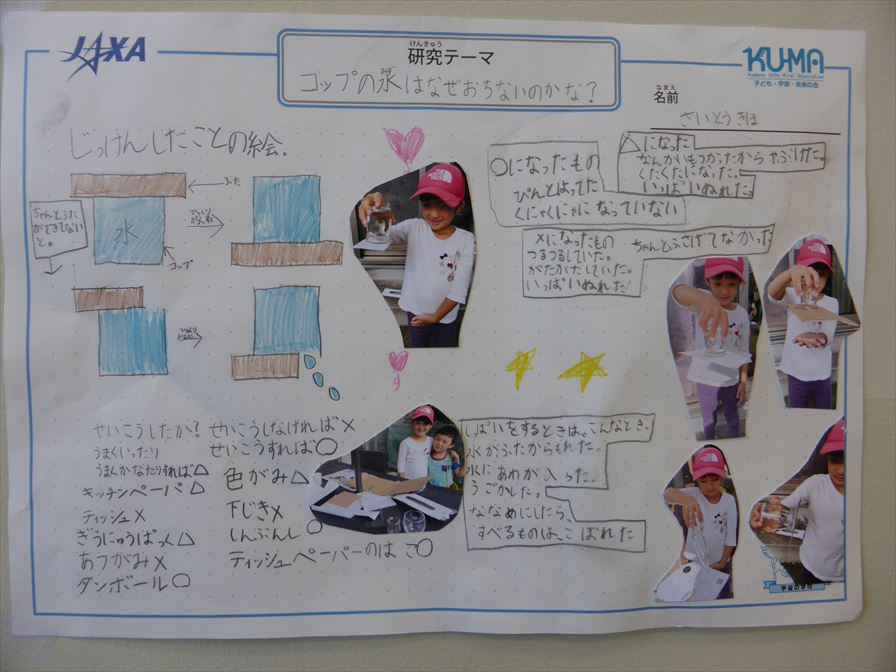 JAXA
けんきゅう
研究テーマ
コップの水はなぜおちないのかな?
KU-MA
Kodomo Uchu Mirai Association
子ども・宇宙・未来の会
なまえ
名前
さいとうきほ
じっけんしたことの絵.
ふた
ちゃんとふた
ができてない
と。
水
コップ
○になったもの
ぴんとはってた
くにゃくにゃになっていない
△になった
なんかいもつかったからやぶけた。
くたくたになった。
いっぱいぬれた。
×になったもの
つるつるしていた。
がたがたしていた。
いっぱいぬれた
ちゃんとふさげてなかった
せいこうしたか?
せいこうしなければ×
せいこうすれば○
うまくいったり
うまくかなたりすれば△
キッチンペーパ△
ティッシュ×
ぎうにゅうぱっく△
あつがみ×
ダンボール○
色がみ△
下じき×
しんぶんし○
ティッシュペーパーのはこ○
しっぱいをするときは、こんなとき。
水がふたからもれた。
水にあわが入った。
うごかした。
ななめにしたら、
すべるものは、こぼれた
宇宙の学校